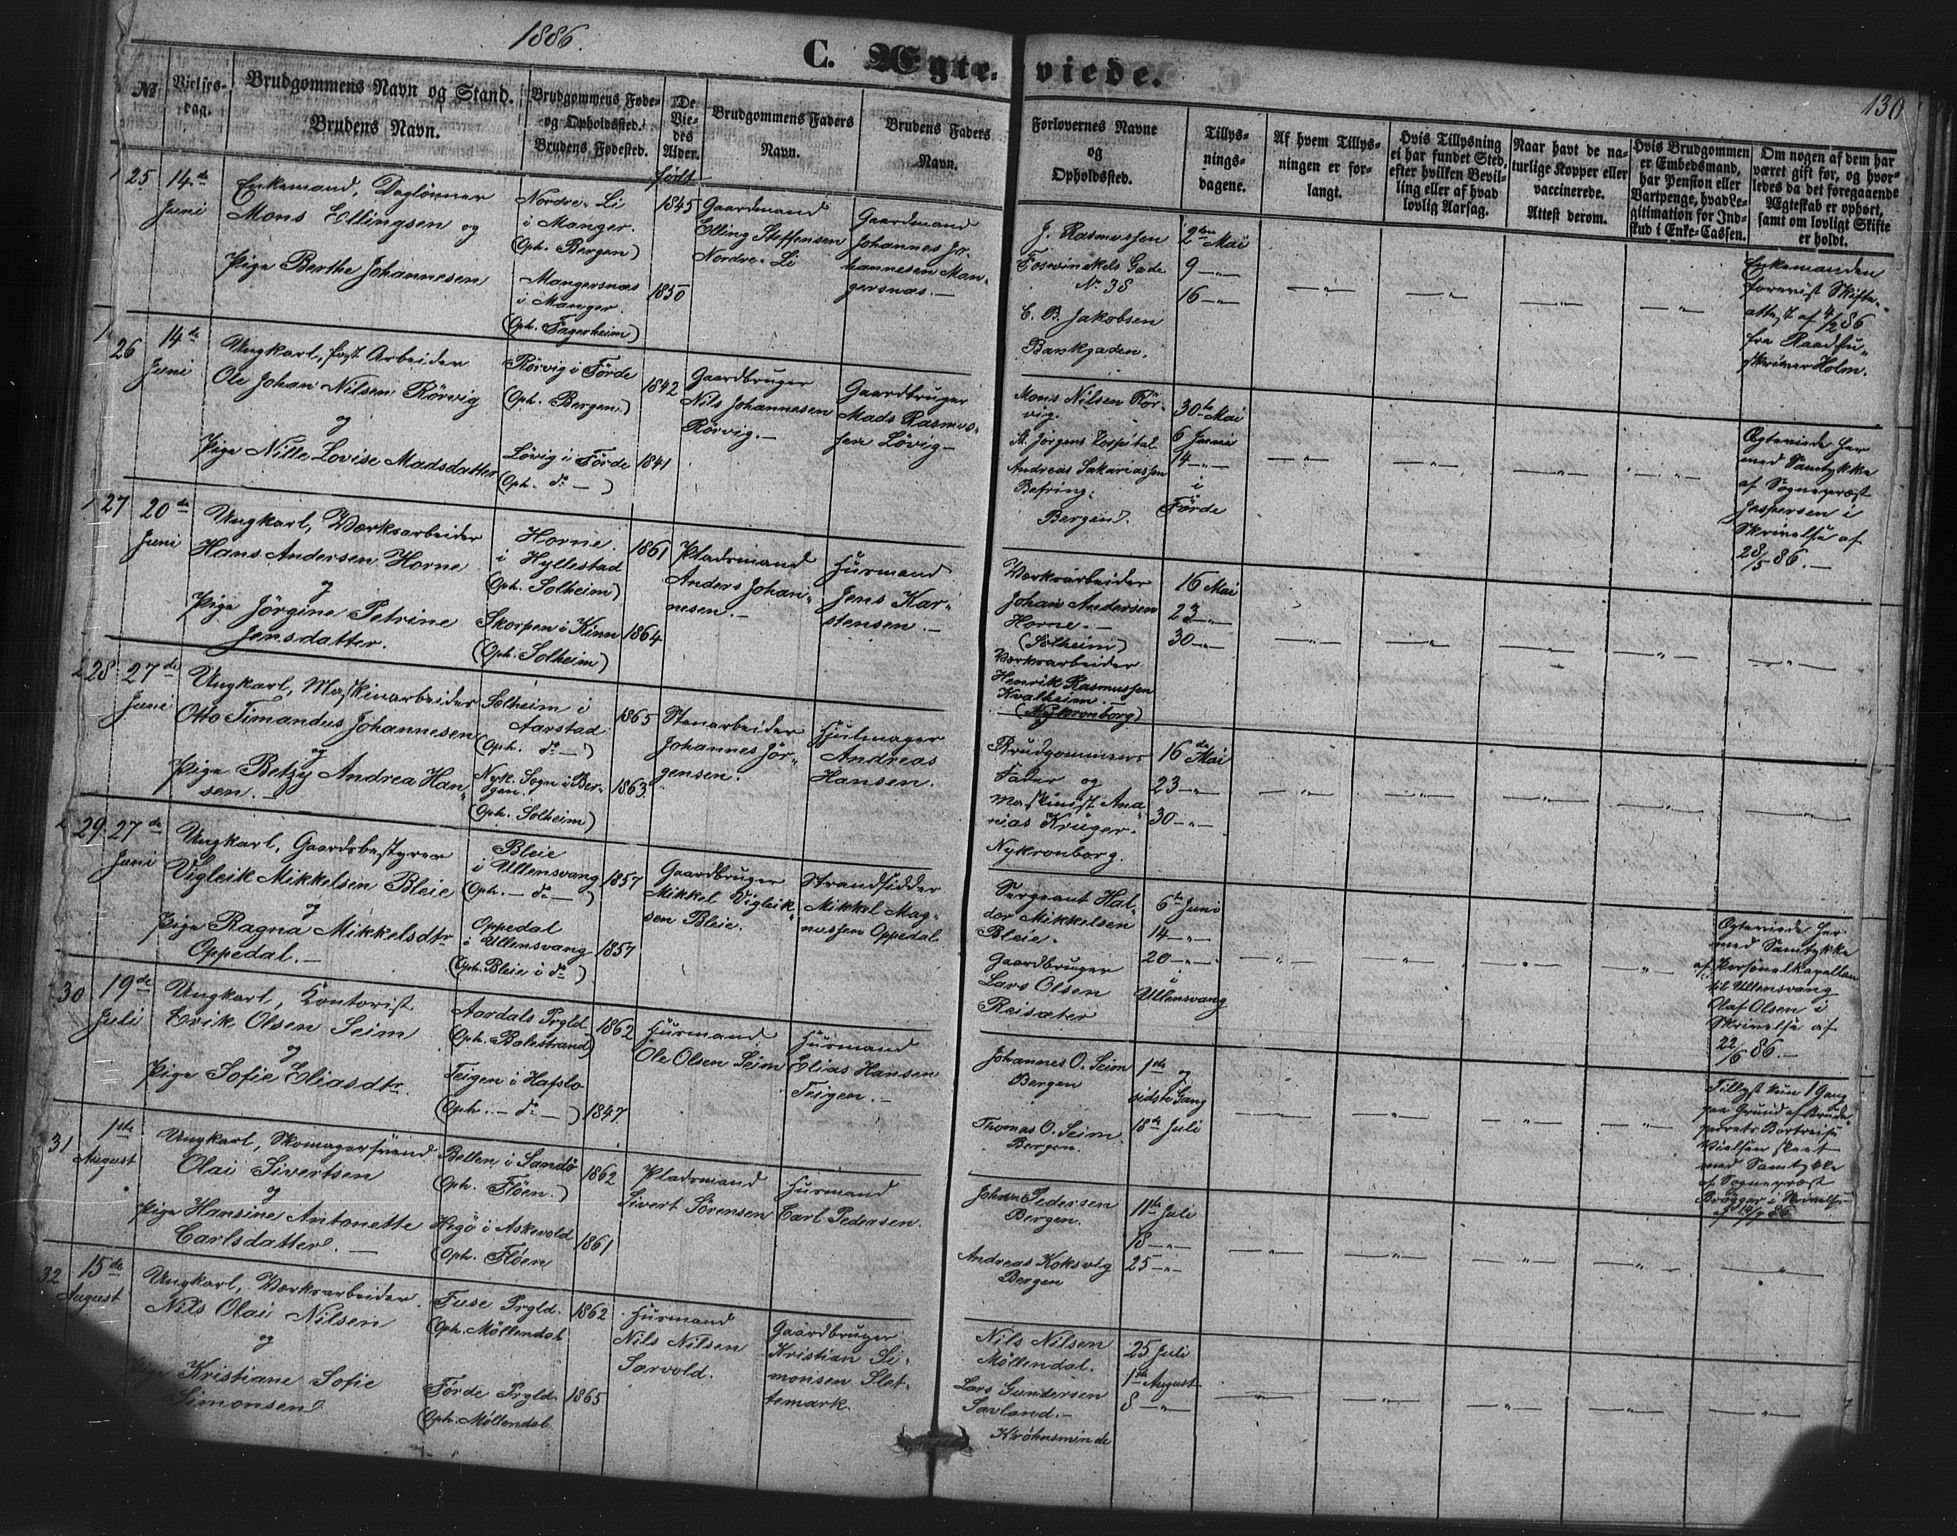 1886.
C. Ægte-viede.
130
№
Vielses-
dag.
Brudgommens Navn og Stand.
Brudens Navn.
Brudgommens Føde-
og Opholdssted.
Brudens Fødested.
De
Vie-
des
Alder.
født
Brudgommens Faders
Navn.
Brudens Faders
Navn.
Forlovernes Navne
og
Opholdssted.
Tillys-
nings-
dagene.
Af hvem Tillys-
ningen er for-
langt.
Hvis Tillysning
ei har fundet Sted,
efter hvilken Bevil-
ling eller af hvad
lovlig Aarsag.
Naar havt de na-
turlige Kopper eller
vaccinerede.
Attest derom.
Hvis Brudgommen
er Embedsmand,
har Pension eller
Vartpenge, hvad Le-
gitimation for Ind-
skud i Enke-Cassen.
Om nogen af dem har
været gift før, og hvor-
ledes da det foregaaende
Ægteskab er ophørt,
samt om lovligt Skifte
er holdt.
25
14de
Juni
Enkemand, Daglønner
Mons Ellingsen og
Pige Berthe Johannesen
Nordre-Li
i Manger.
(Oph. Bergen)
Mangersnæs
i Manger.
(Oph. Fagerheim)
1845
1850
Gaardmand
Elling Steffensen
Nordre-Li
Gaardmand
Johannes Jo-
hannesen Man-
gersnæs.—
J. Rasmussen
Foswinckels Gade
No 38
C. B. Jakobsen
Baskgaden.
2den Mai
9 —"—
16 —"—
Enkemanden
forevist Skifte-
atte, d. af 4/2 86
fra Raadstu-
skriver Holm.
26
14de
Juni
Ungkarl, fast Arbeider
Ole Johan Nilsen Rörvig
og
Pige Nille Lovise Madsdatter
Rörvig i Förde
(Oph. Bergen)
Lövig i Förde
(Oph. do —)
1842
1841
Gaardbruger
Nils Johannesen
Rörvig.—
Gaardbruger
Mads Rasmus-
sen Lövig—
Mons Nilsen Rör-
vig.
St. Jörgens Hospital
Andreas Sakariassen
Befring.
Bergen.
30te Mai
6 Juni
14 —"—
i
Förde
Ægteviede her
med Samtykke
af Sognepræst
Jespersen i
Skrivelse af
28/5 86.—
27
20de
Juni
Ungkarl, Værksarbeider
Hans Andersen Horne
og
Pige Jörgine Petrine
Jensdatter.
Horne
i Hyllestad
(Oph. Solheim)
Skorpen i Kinn
(Oph. Solheim)
1861
1864
Pladsmand
Anders Johan-
nesen.—
Husmand
Jens Kar-
stensen.—
Værksarbeider
Johan Andersen
Horne.—
(Solheim)
Værksarbeider
Henrik Rasmussen
Kvalheim.—
(Nykronborg)
16 Mai
23 —"—
30 —"—
28
27de
Juni
Ungkarl, Maskinarbeider
Otto Timandus Johannesen
og
Pige Betzy Andrea Han-
sen.—
Solheim i
Aarstad
(Oph. do —)
Nyk. Sogn i Ber-
gen.
(Oph. Solheim)
1865
1863
Stenarbeider
Johannes Jör-
gensen.
Hjulmager
Andreas
Hansen.
Brudgommens
Fader og
Maskinist Ana-
nias Krüger.
Nykronborg.
16de Mai
23 —"—
30 —"—
29
27de
Juni
Ungkarl, Gaardsbestyrer
Vigleik Mikkelsen Bleie
og
Pige Ragna Mikkelsdtr
Oppedal.—
Bleie
i Ullensvang
(Oph. — do —)
Oppedal
i Ullensvang
(Oph. Bleie i do)
1857
1857
Gaardbruger
Mikkel Vigleik-
sen Bleie.
Strandsidder
Mikkel Mag-
nussen Oppedal
Sergeant Hal-
dor Mikkelsen
Bleie.
Gaardbruger
Lars Olsen
Reisæter
6te Juni
14 —"—
20 —"—
i
Ullensvang
Ægteviede her
med Samtykke
af Personelkapellan
til Ullensvang
Olaf Olsen i
Skrivelse af
22/6 86.—
30
19de
Juli
Ungkarl, Kontorist
Erik Olsen Seim
og
Pige Sofie Eliasdtr.
Aardals Prgld
(Oph. Balestrand)
Teigen i Hafslo
(Oph. — do —)
1862
1847
Husmand
Ole Olsen Seim
Husmand
Elias Hansen
Teigen.—
Johannes O. Seim
Bergen
Thomas O. Seim.
Bergen.
1ste og
sidste Gang
18de Juli
Tillyst kun 1 Gang
paa Grund af Brude-
parrets Bortreise
Vielsen skeet
med Samtykke
af Sognepræst
Brögger i Skrivelse
31
1ste
August
Ungkarl, Skomagersvend
Olai Sivertsen
og
Pige Hansine Antonette
Carlsdatter.—
(Oph. Flöen.)
Askevold
Oph. Flöen
1862
1861
Pladsmand
Sivert Sörensen
Husmand
Carl Pedersen.
Johan Pedersen
Bergen.
Andreas Koksvig
Bergen
11te Juli
18 —"—
25 —"—
32
15de
August
Ungkarl, Værksarbeider
Nils Olai Nilsen
og
Pige Kristiane Sofie
Simonsen
Fuse Prgld.
Oph. Möllendal
Förde Prgld.
(Oph. Möllendal
1862
1865
Husmand
Nils Nilsen
Sævold.
Gaardbruger
Kristian Si-
monsen Slet-
temark.
Nils Nilsen
Möllendal.
Lars Gundersen
Savland.—
Krohnsminde
25 Juli
1ste August
8 —"—